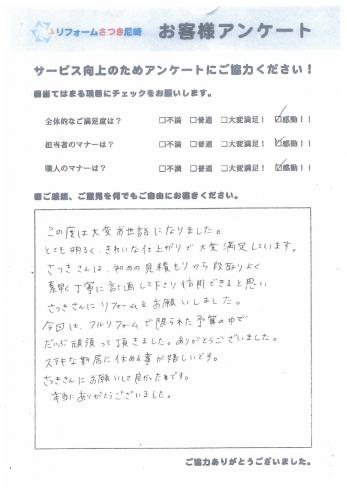 リフォームさつき尼崎 お客様アンケート
サービス向上のためアンケートにご協力ください！
■当てはまる項目にチェックをお願いします。
全体的なご満足度は？ □不満 □普通 □大変満足！ ☑感動！！
担当者のマナーは？ □不満 □普通 □大変満足！ ☑感動！！
職人のマナーは？ □不満 □普通 □大変満足！ ☑感動！！
■ご感想、ご意見を何でもご自由にお書きください。
この度は大変お世話になりました。
とても明るく、きれいな仕上がりで大変満足しています。
さつきさんは、初めの見積もりから段取りよく
素早く丁寧に計画して下さり信用できると思い
さつきさんにリフォームをお願いしました。
今回は、フルリフォームで限られた予算の中で
だいぶ頑張って頂きました。ありがとうございました。
ステキな新居に住める事が嬉しいです。
さつきさんにお願いして良かったです。
本当にありがとうございました。
ご協力ありがとうございました。